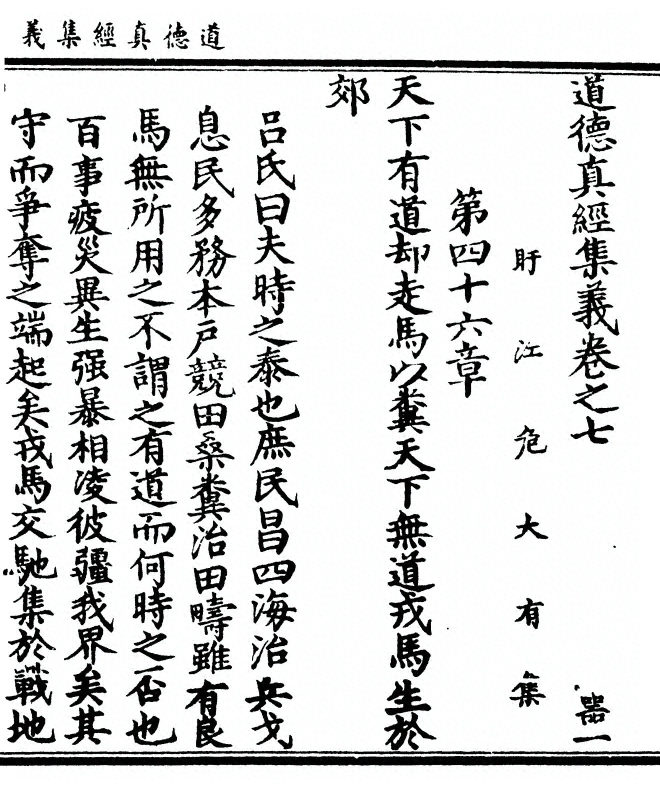 道德真經集義
道德真經集義卷之七
器一
盱江危大有集
第四十六章
天下有道却走馬以糞天下無道戎馬生於
郊
吕氏曰夫時之泰也庶民昌四海治兵戈
息民多務本戶競田桑糞治田疇雖有良
馬無所用之不謂之有道而何時之否也
百事疲災異生强暴相凌彼疆我界矣其
守而爭奪之端起矣戎馬交馳集於戰地